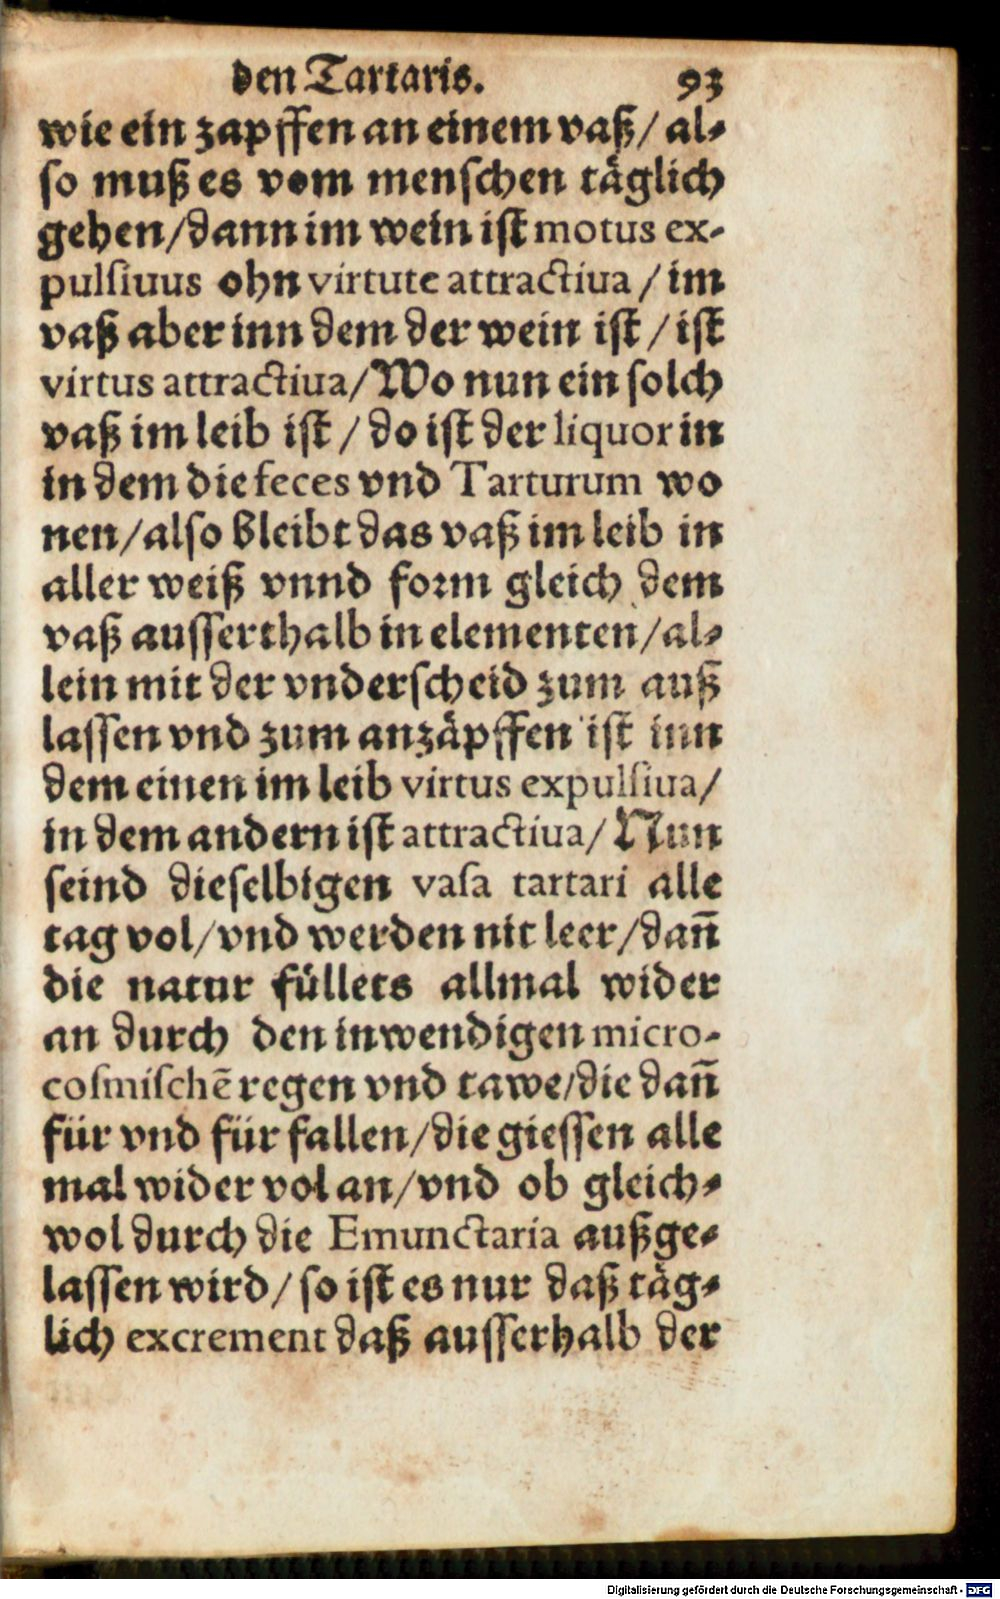 den Tartaris. 93
wie ein zapffen an einem vaß/ al-
so muß es vom menschen täglich
gehen/dann im wein ist motus ex-
pulsiuus ohn virtute attractiua / im
vaß aber inn dem der wein ist / ist
virtus attractiua/Wo nun ein solch
vaß im leib ist / do ist der liquor in
in dem die feces vnd Tarturum wo
nen/also bleibt das vaß im leib in
aller weiß vnnd form gleich dem
vaß ausserthalb in elementen/al-
lein mit der vnderscheid zum auß
lassen vnd zum anzäpffen ist inn
dem einen im leib virtus expulsiua/
in dem andern ist attractiua/ Nun
seind dieselbigen vasa tartari alle
tag vol/vnd werden nit leer/dañ
die natur füllets allmal wider
an durch den inwendigen micro-
cosmischē regen vnd tawe/die dañ
für vnd für fallen/die giessen alle
mal wider vol an/vnd ob gleich-
wol durch die Emunctaria außge-
lassen wird/ so ist es nur daß täg-
lich excrement daß ausserhalb der
Digitalisierung gefördert durch die Deutsche Forschungsgemeinschaft - DFG